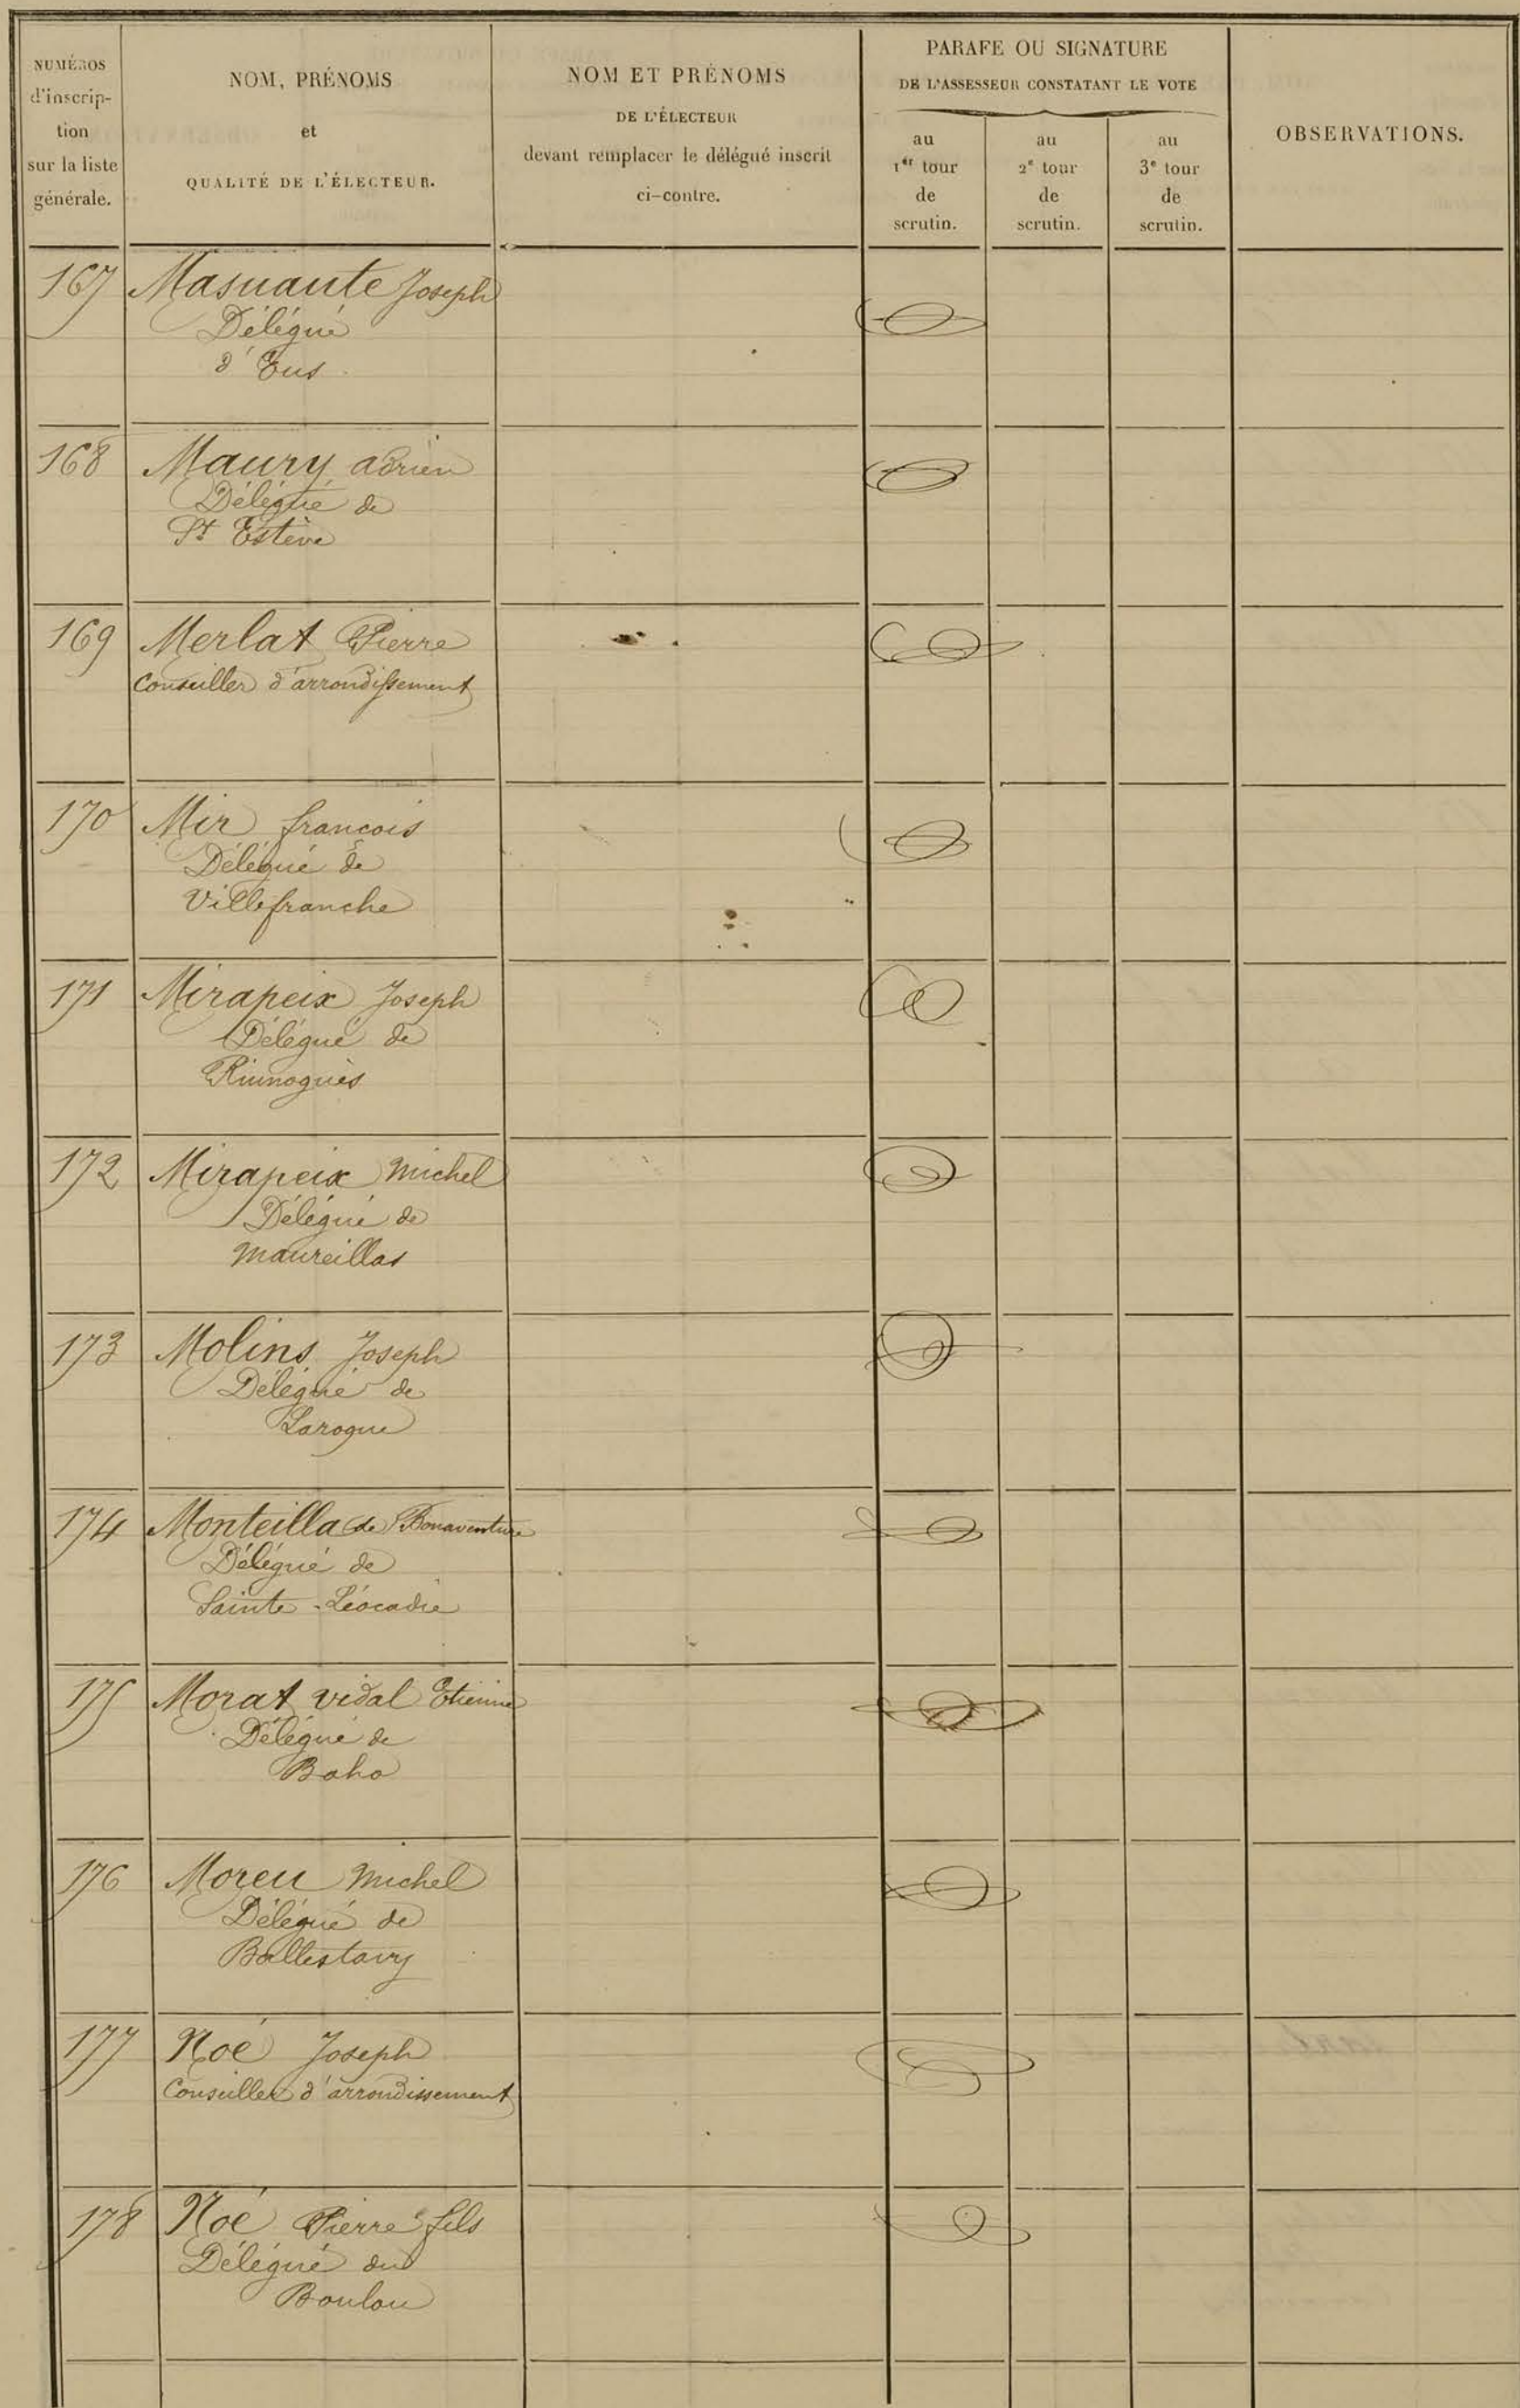 NUMÉROS
d'inscrip-
tion
sur la liste
générale.
NOM, PRÉNOMS
et
QUALITÉ DE L'ÉLECTEUR.
NOM ET PRÉNOMS
DE L'ÉLECTEUR
devant remplacer le délégué inscrit
ci-contre.
PARAFE OU SIGNATURE
DE L'ASSESSEUR CONSTATANT LE VOTE
au
1er tour
de
scrutin.
au
2e tour
de
scrutin.
au
3e tour
de
scrutin.
OBSERVATIONS.
167 Masnaute Joseph
Délégué
d'Eus
168 Maury adrien
Délégué de
St Estève
169 Merlat Pierre
Conseiller d'arrondissement
170 Mir françois
Délégué de
Villefranche
171 Mirapeix Joseph
Délégué de
Riunoguès
172 Mirapeix Michel
Délégué de
Maureillas
173 Molins Joseph
Délégué de
Laroque
174 Monteilla de Bonaventure
Délégué de
Sainte-Léocadie
175 Morat vidal Etienne
Délégué de
Baho
176 Moreu Michel
Délégué de
Ballestavy
177 Noé Joseph
Conseiller d'arrondissement
178 Noé Pierre fils
Délégué du
Boulou